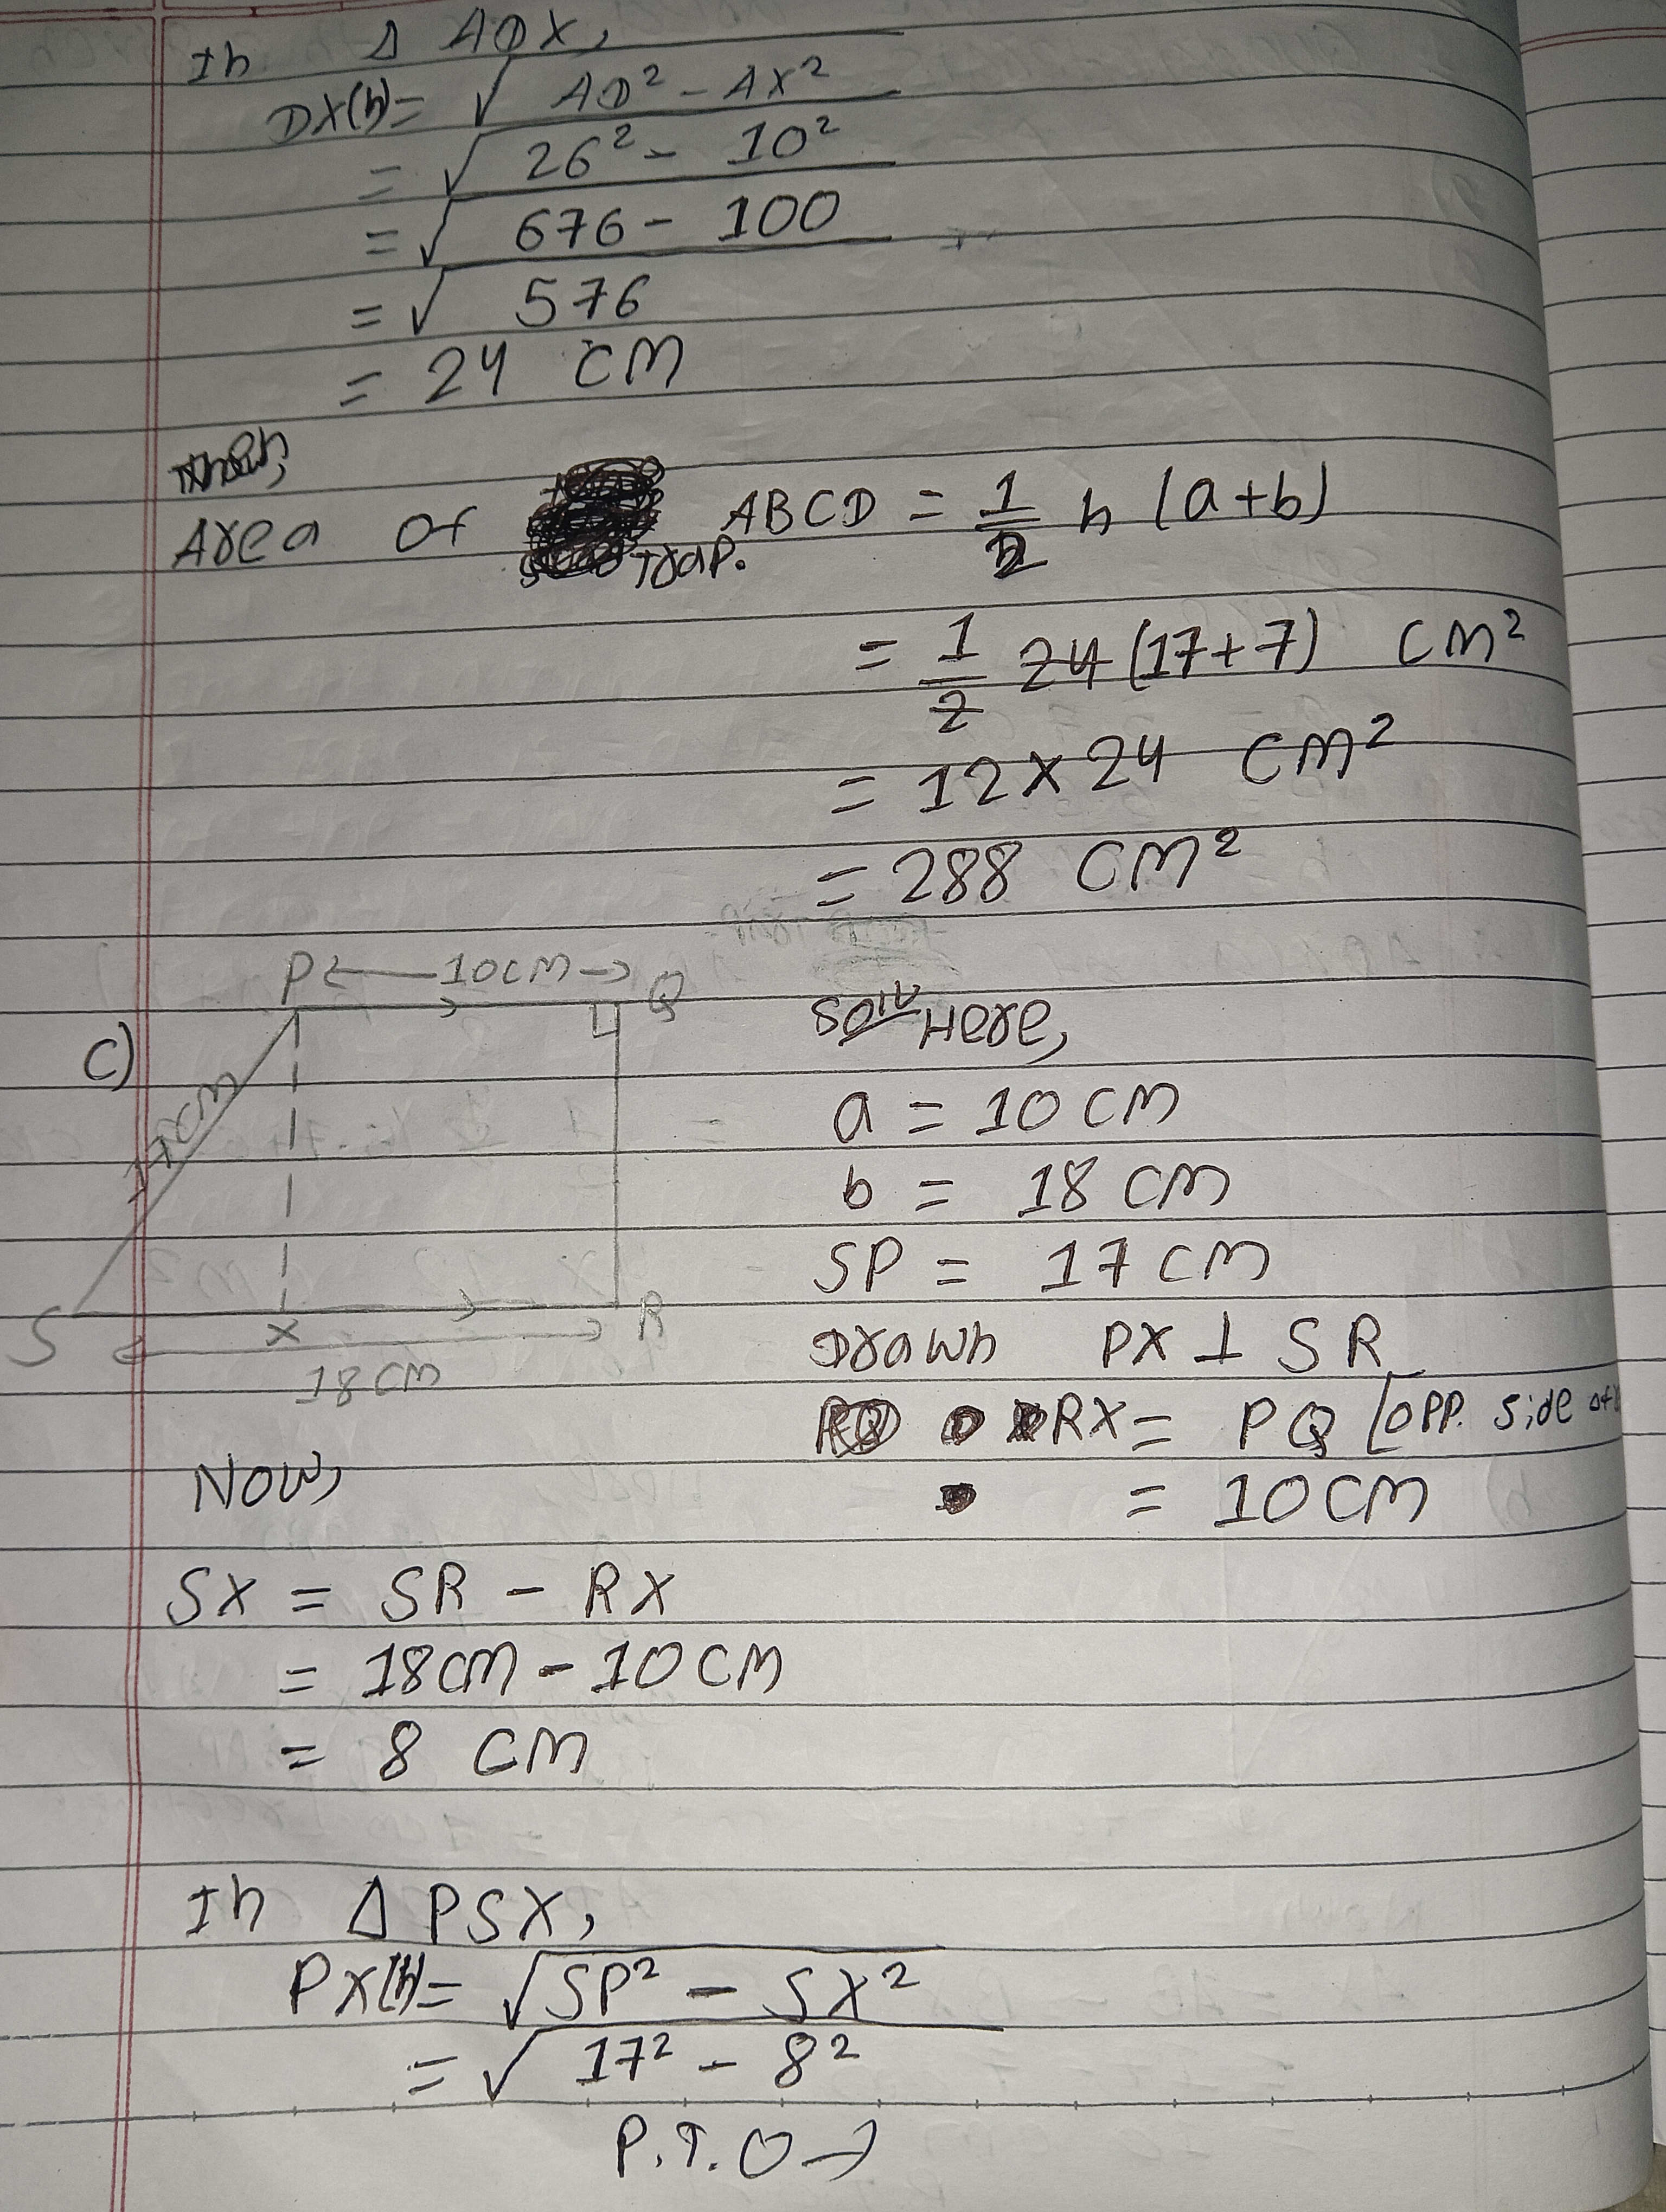 In Δ ADX,
DX(h) = √AD² - AX²
= √26² - 10²
= √676 - 100
= √576
= 24 CM
Then,
Area of Trap. ABCD = 1/2 h (a+b)
= 1/2 24 (17+7) CM²
= 12 × 24 CM²
= 288 CM²
C)
P 10CM Q
17CM
S X R
18CM
Solⁿ Here,
a = 10 CM
b = 18 CM
SP = 17 CM
Drawn PX ⊥ SR
RX = PQ [opp. side of
= 10 CM
Now,
SX = SR - RX
= 18 CM - 10 CM
= 8 CM
In Δ PSX,
PX(h) = √SP² - SX²
= √17² - 8²
P.T.O →